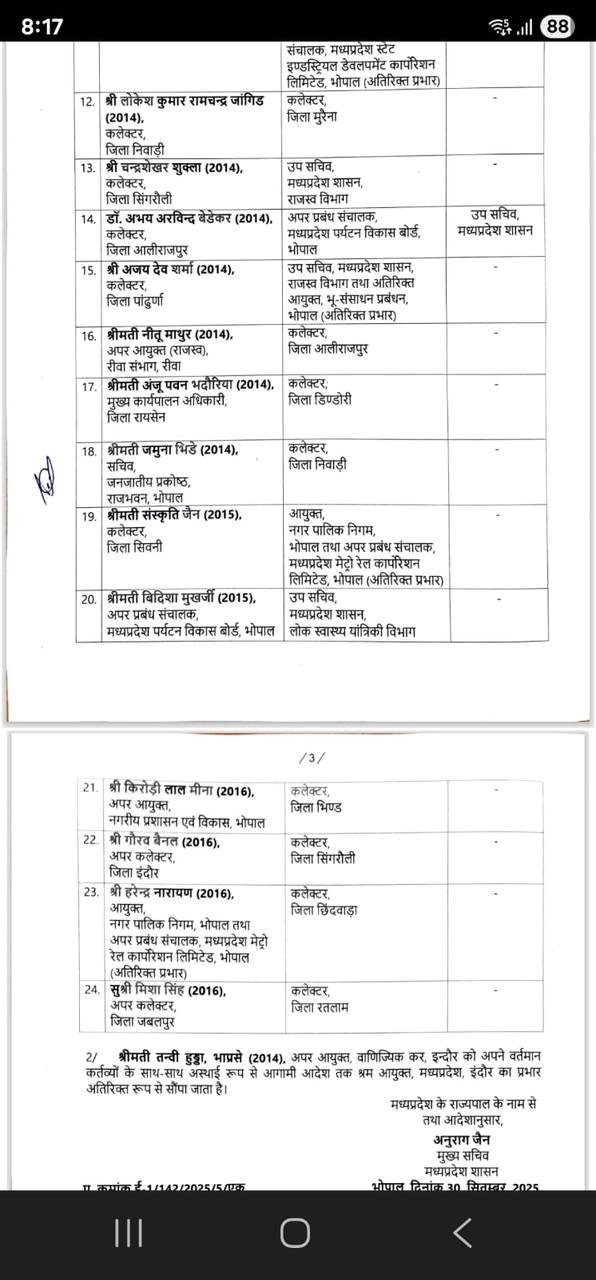 8:17
88
संचालक, मध्यप्रदेश स्टेट
इण्डस्ट्रियल डेवलपमेंट कार्पोरेशन
लिमिटेड, भोपाल (अतिरिक्त प्रभार)
12. श्री लोकेश कुमार रामचन्द्र जांगिड (2014), कलेक्टर, जिला निवाड़ी
कलेक्टर,
जिला मुरैना
-
13. श्री चन्द्रशेखर शुक्ला (2014),
कलेक्टर,
जिला सिंगरौली
उप सचिव,
मध्यप्रदेश शासन,
राजस्व विभाग
-
14. डॉ. अभय अरविन्द बेडेकर (2014),
कलेक्टर,
जिला आलीराजपुर
अपर प्रबंध संचालक,
मध्यप्रदेश पर्यटन विकास बोर्ड,
भोपाल
उप सचिव,
मध्यप्रदेश शासन
15. श्री अजय देव शर्मा (2014),
कलेक्टर,
जिला पांढुर्णा
उप सचिव, मध्यप्रदेश शासन,
राजस्व विभाग तथा अतिरिक्त
आयुक्त, भू-संसाधन प्रबंधन,
भोपाल (अतिरिक्त प्रभार)
-
16. श्रीमती नीतू माथुर (2014),
अपर आयुक्त (राजस्व),
रीवा संभाग, रीवा
कलेक्टर,
जिला आलीराजपुर
-
17. श्रीमती अंजू पवन भदौरिया (2014),
मुख्य कार्यपालन अधिकारी,
जिला रायसेन
कलेक्टर,
जिला डिण्डोरी
-
18. श्रीमती जमुना भिडे (2014),
सचिव,
जनजातीय प्रकोष्ठ,
राजभवन, भोपाल
कलेक्टर,
जिला निवाड़ी
-
19. श्रीमती संस्कृति जैन (2015),
कलेक्टर,
जिला सिवनी
आयुक्त,
नगर पालिक निगम,
भोपाल तथा अपर प्रबंध संचालक,
मध्यप्रदेश मेट्रो रेल कार्पोरेशन
लिमिटेड, भोपाल (अतिरिक्त प्रभार)
-
20. श्रीमती बिदिशा मुखर्जी (2015),
अपर प्रबंध संचालक,
मध्यप्रदेश पर्यटन विकास बोर्ड, भोपाल
उप सचिव,
मध्यप्रदेश शासन,
लोक स्वास्थ्य यांत्रिकी विभाग
-
/3/
21. श्री किरोड़ी लाल मीना (2016),
अपर आयुक्त,
नगरीय प्रशासन एवं विकास, भोपाल
कलेक्टर,
जिला भिण्ड
-
22. श्री गौरव बैनल (2016),
अपर कलेक्टर,
जिला इंदौर
कलेक्टर,
जिला सिंगरौली
-
23. श्री हरेन्द्र नारायण (2016),
आयुक्त,
नगर पालिक निगम, भोपाल तथा
अपर प्रबंध संचालक, मध्यप्रदेश मेट्रो
रेल कार्पोरेशन लिमिटेड, भोपाल
(अतिरिक्त प्रभार)
कलेक्टर,
जिला छिंदवाड़ा
-
24. सुश्री मिशा सिंह (2016),
अपर कलेक्टर,
जिला जबलपुर
कलेक्टर,
जिला रतलाम
-
2/ श्रीमती तन्वी हुड्डा, भाप्रसे (2014), अपर आयुक्त, वाणिज्यिक कर, इन्दौर को अपने वर्तमान
कर्तव्यों के साथ-साथ अस्थाई रूप से आगामी आदेश तक श्रम आयुक्त, मध्यप्रदेश, इंदौर का प्रभार
अतिरिक्त रूप से सौंपा जाता है।
मध्यप्रदेश के राज्यपाल के नाम से
तथा आदेशानुसार,
अनुराग जैन
मुख्य सचिव
मध्यप्रदेश शासन
क्रमांक ई-1/142/2025/5/एक
भोपाल, दिनांक 30, सितम्बर, 2025